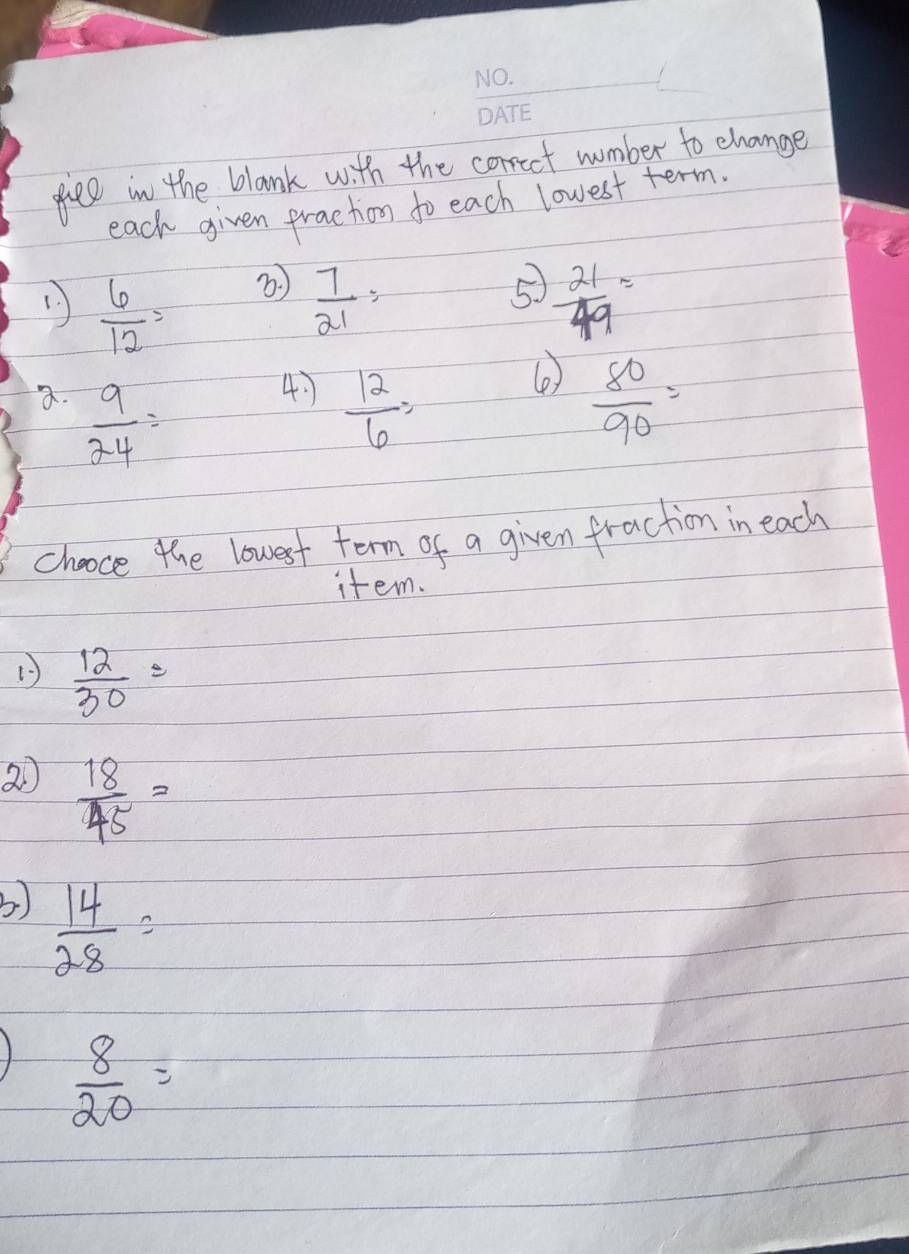 NO.
DATE
fill in the blank with the correct number to change
each given fraction to each lowest term.
1.) 6/12 = 3.) 7/21 = 5.) 21/49 =
2. 9/24 = 4.) 12/6 = 6) 80/90 =
chooce the lowest term of a given fraction in each
item.
1.) 12/30 =
2.) 18/45 =
3.) 14/28 =
) 8/20 =